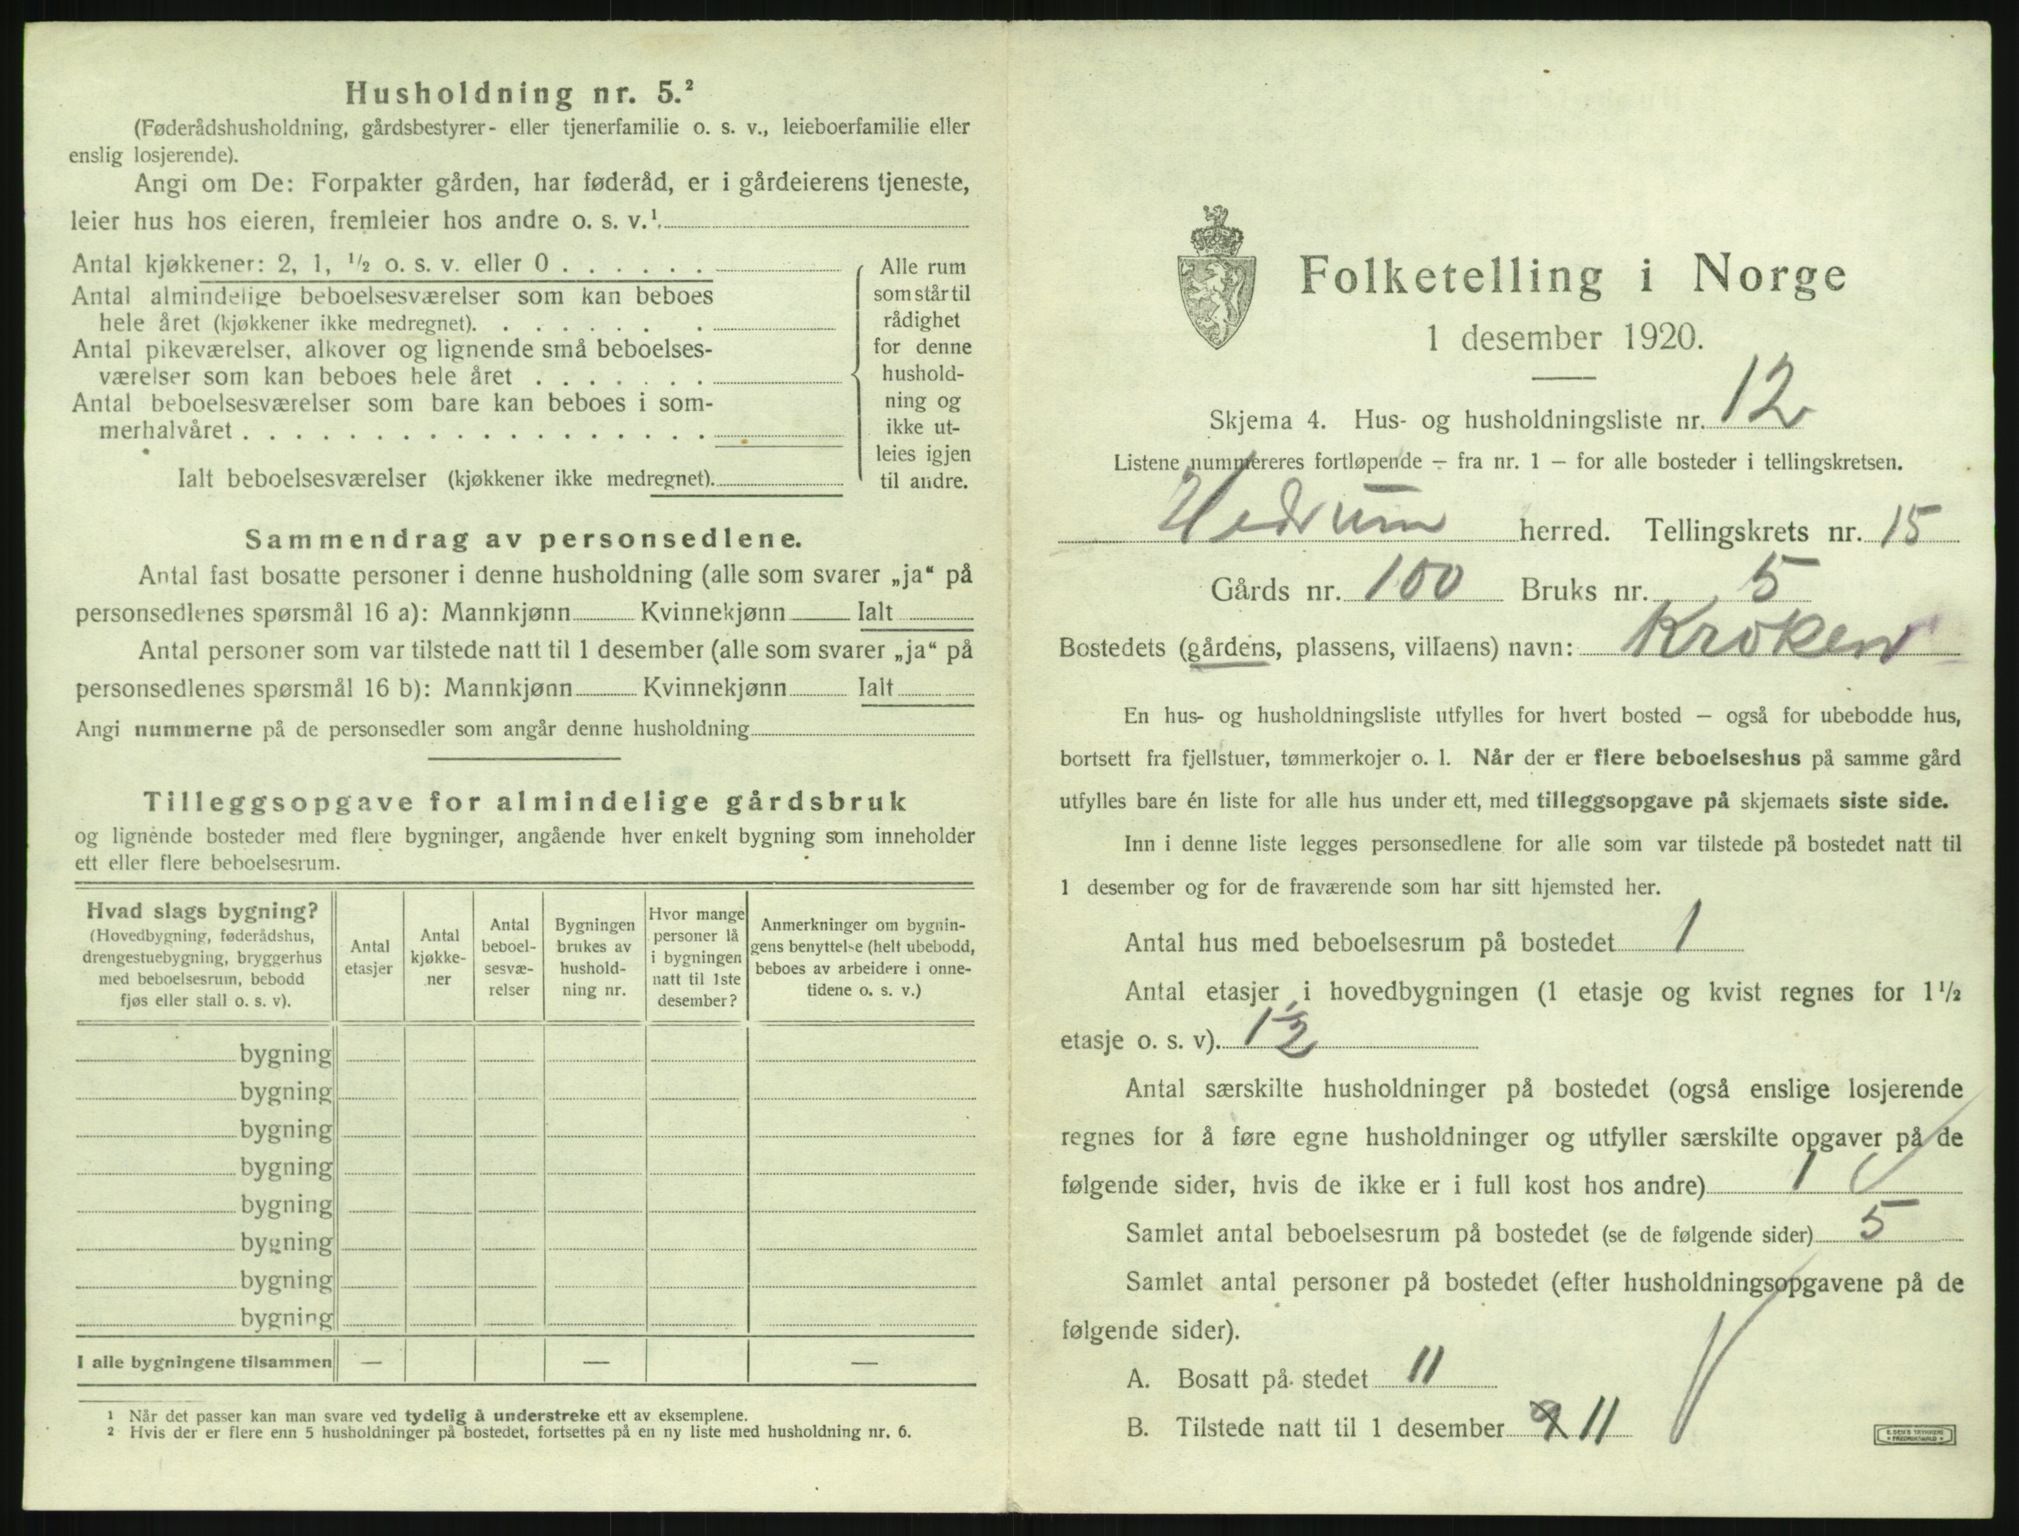 Husholdning nr. 5.²
(Føderådshusholdning, gårdsbestyrer- eller tjenerfamilie o. s. v., leieboerfamilie eller
enslig losjerende).
Angi om De: Forpakter gården, har føderåd, er i gårdeierens tjeneste,
leier hus hos eieren, fremleier hos andre o. s. v.¹.
Antal kjøkkener: 2, 1, ½ o. s. v. eller 0 . . . . . .
Antal almindelige beboelsesværelser som kan beboes
hele året (kjøkkener ikke medregnet). . . . . . . .
Antal pikeværelser, alkover og lignende små beboelses-
værelser som kan beboes hele året . . . . . . .
Antal beboelsesværelser som bare kan beboes i som-
merhalvåret . . . . . . . . . . . . . . . . . .
Ialt beboelsesværelser (kjøkkener ikke medregnet).
Alle rum
som står til
rådighet
for denne
hushold-
ning og
ikke ut-
leies igjen
til andre.
Sammendrag av personsedlene.
Antal fast bosatte personer i denne husholdning (alle som svarer „ja“ på
personsedlenes spørsmål 16 a): Mannkjønn Kvinnekjønn Ialt
Antal personer som var tilstede natt til 1 desember (alle som svarer „ja“ på
personsedlenes spørsmål 16 b): Mannkjønn Kvinnekjønn Ialt
Angi nummerne på de personsedler som angår denne husholdning
Tilleggsopgave for almindelige gårdsbruk
og lignende bosteder med flere bygninger, angående hver enkelt bygning som inneholder
ett eller flere beboelsesrum.
Hvad slags bygning?
(Hovedbygning, føderådshus,
drengestuebygning, bryggerhus
med beboelsesrum, bebodd
fjøs eller stall o. s. v).
Antal
etasjer
Antal
kjøkke-
ner
Antal
beboel-
sesvæ-
relser
Bygningen
brukes av
hushold-
ning nr.
Hvor mange
personer lå
i bygningen
natt til 1ste
desember?
Anmerkninger om bygnin-
gens benyttelse (helt ubebodd,
beboes av arbeidere i onne-
tidene o. s. v.)
bygning
bygning
bygning
bygning
bygning
bygning
bygning
bygning
I alle bygningene tilsammen — — —
¹ Når det passer kan man svare ved tydelig å understreke ett av eksemplene.
² Hvis der er flere enn 5 husholdninger på bostedet, fortsettes på en ny liste med husholdning nr. 6.
Folketelling i Norge
1 desember 1920.
Skjema 4. Hus- og husholdningsliste nr. 12
Listene nummereres fortløpende – fra nr. 1 – for alle bosteder i tellingskretsen.
Hedrum herred. Tellingskrets nr. 15
Gårds nr. 100 Bruks nr. 5
Bostedets (gårdens, plassens, villaens) navn: Kroken
En hus- og husholdningsliste utfylles for hvert bosted – også for ubebodde hus,
bortsett fra fjellstuer, tømmerkojer o. l. Når der er flere beboelseshus på samme gård
utfylles bare én liste for alle hus under ett, med tilleggsopgave på skjemaets siste side.
Inn i denne liste legges personsedlene for alle som var tilstede på bostedet natt til
1 desember og for de fraværende som har sitt hjemsted her.
Antal hus med beboelsesrum på bostedet 1
Antal etasjer i hovedbygningen (1 etasje og kvist regnes for 1½
etasje o. s. v). 1½
Antal særskilte husholdninger på bostedet (også enslige losjerende
regnes for å føre egne husholdninger og utfyller særskilte opgaver på de
følgende sider, hvis de ikke er i full kost hos andre) 1
Samlet antal beboelsesrum på bostedet (se de følgende sider) 5
Samlet antal personer på bostedet (efter husholdningsopgavene på de
følgende sider).
A. Bosatt på stedet 11
B. Tilstede natt til 1 desember 9 11